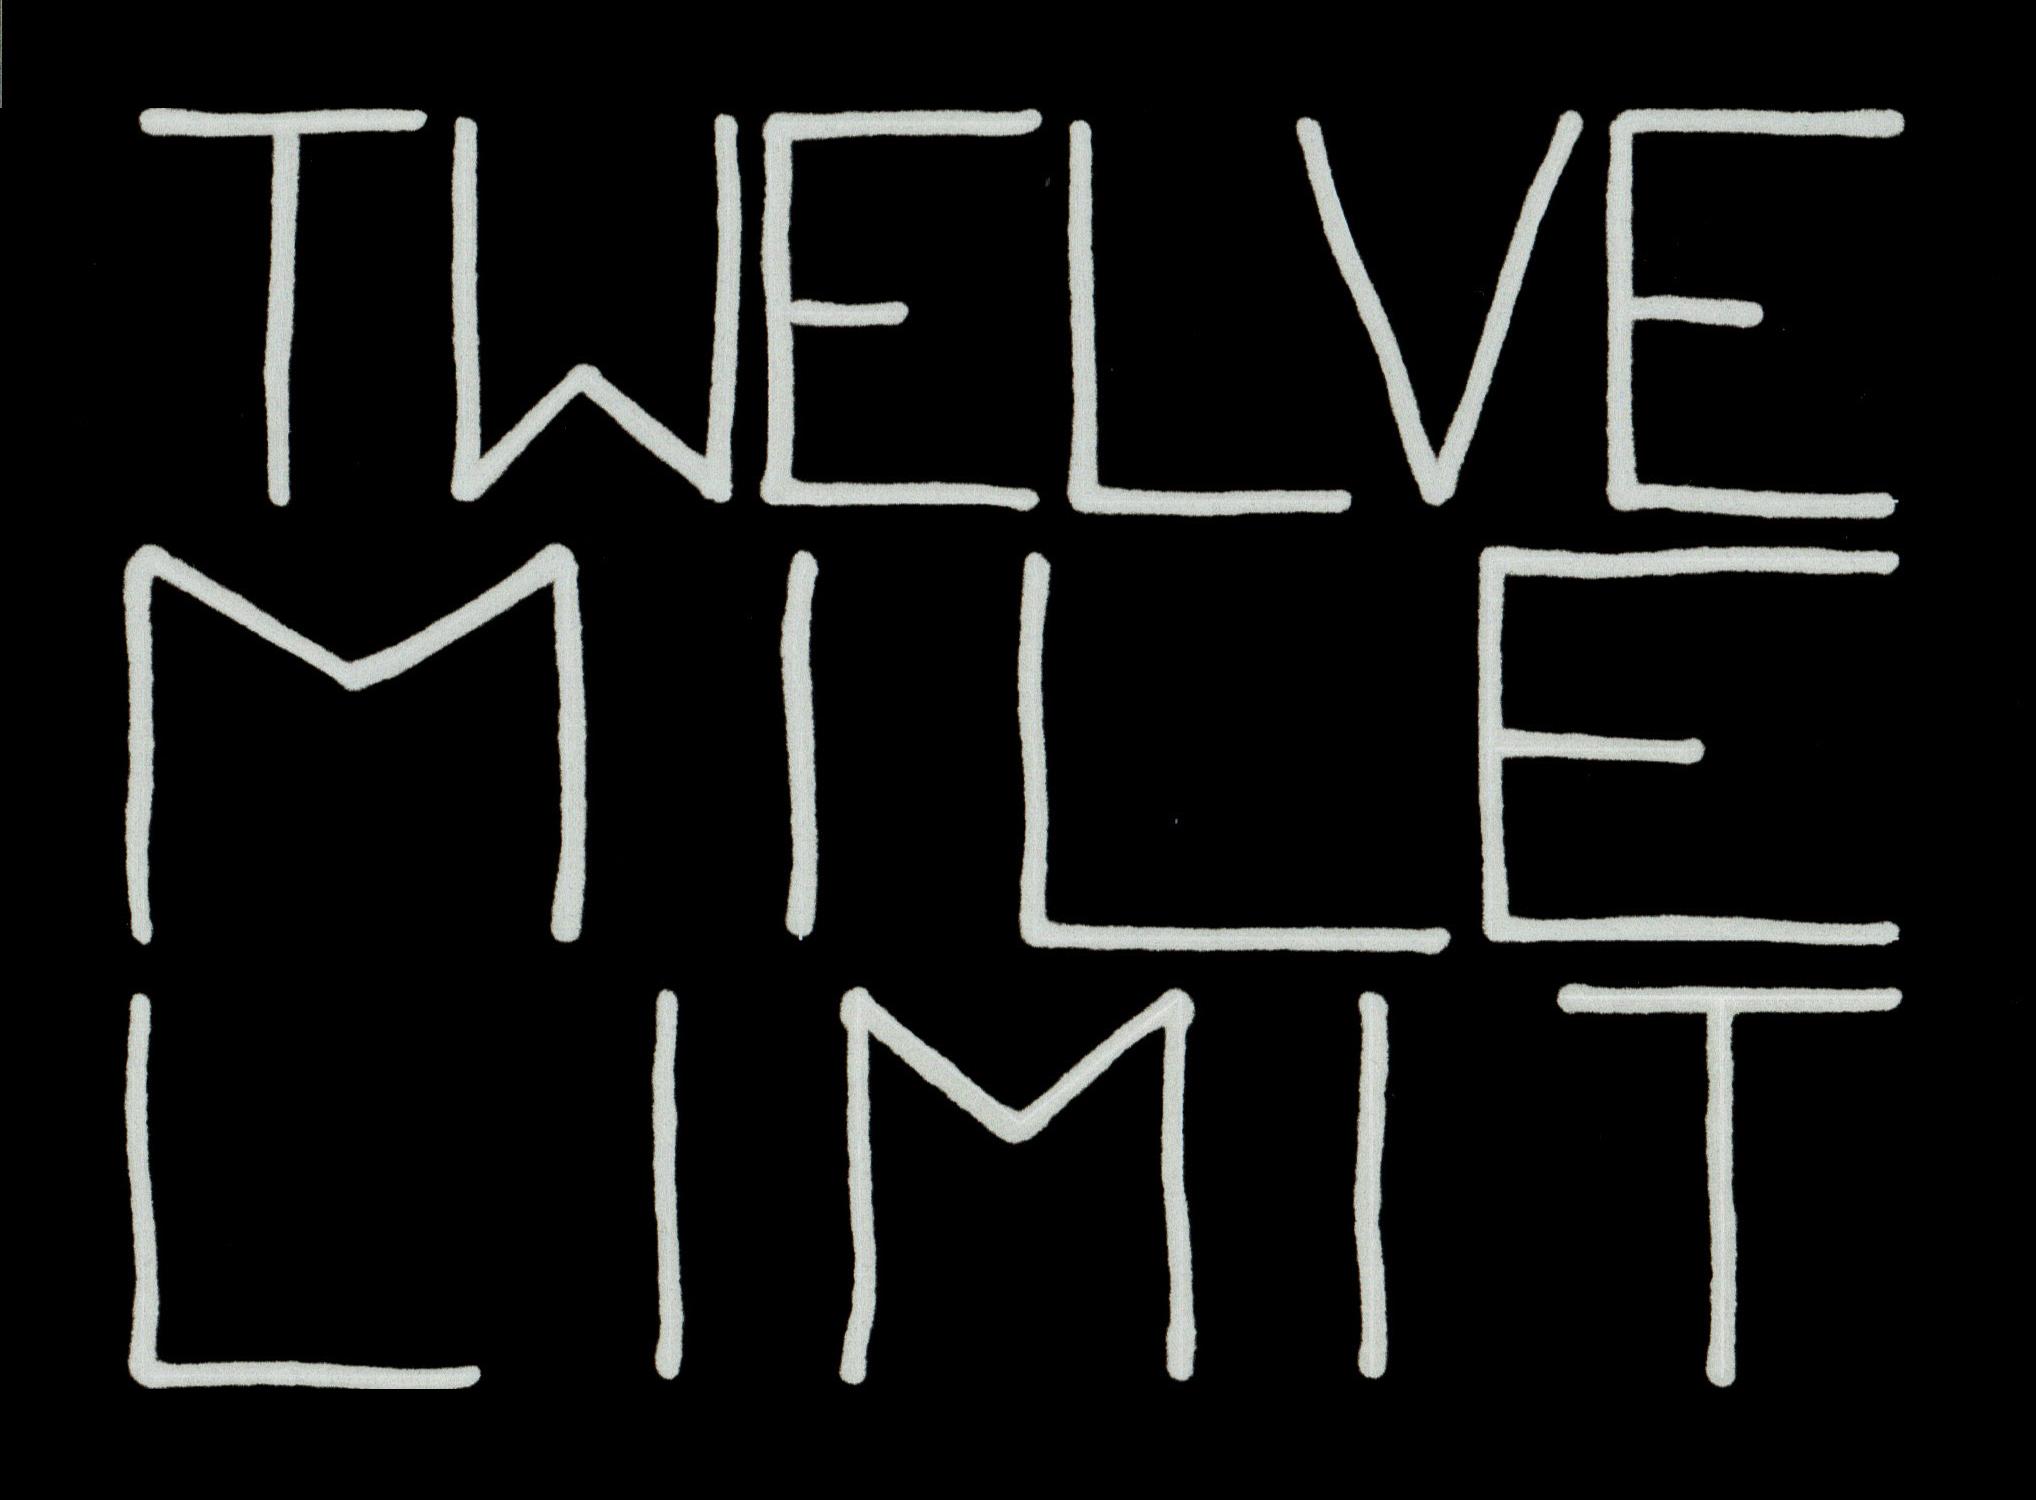 TWELVE
MILE
LIMIT